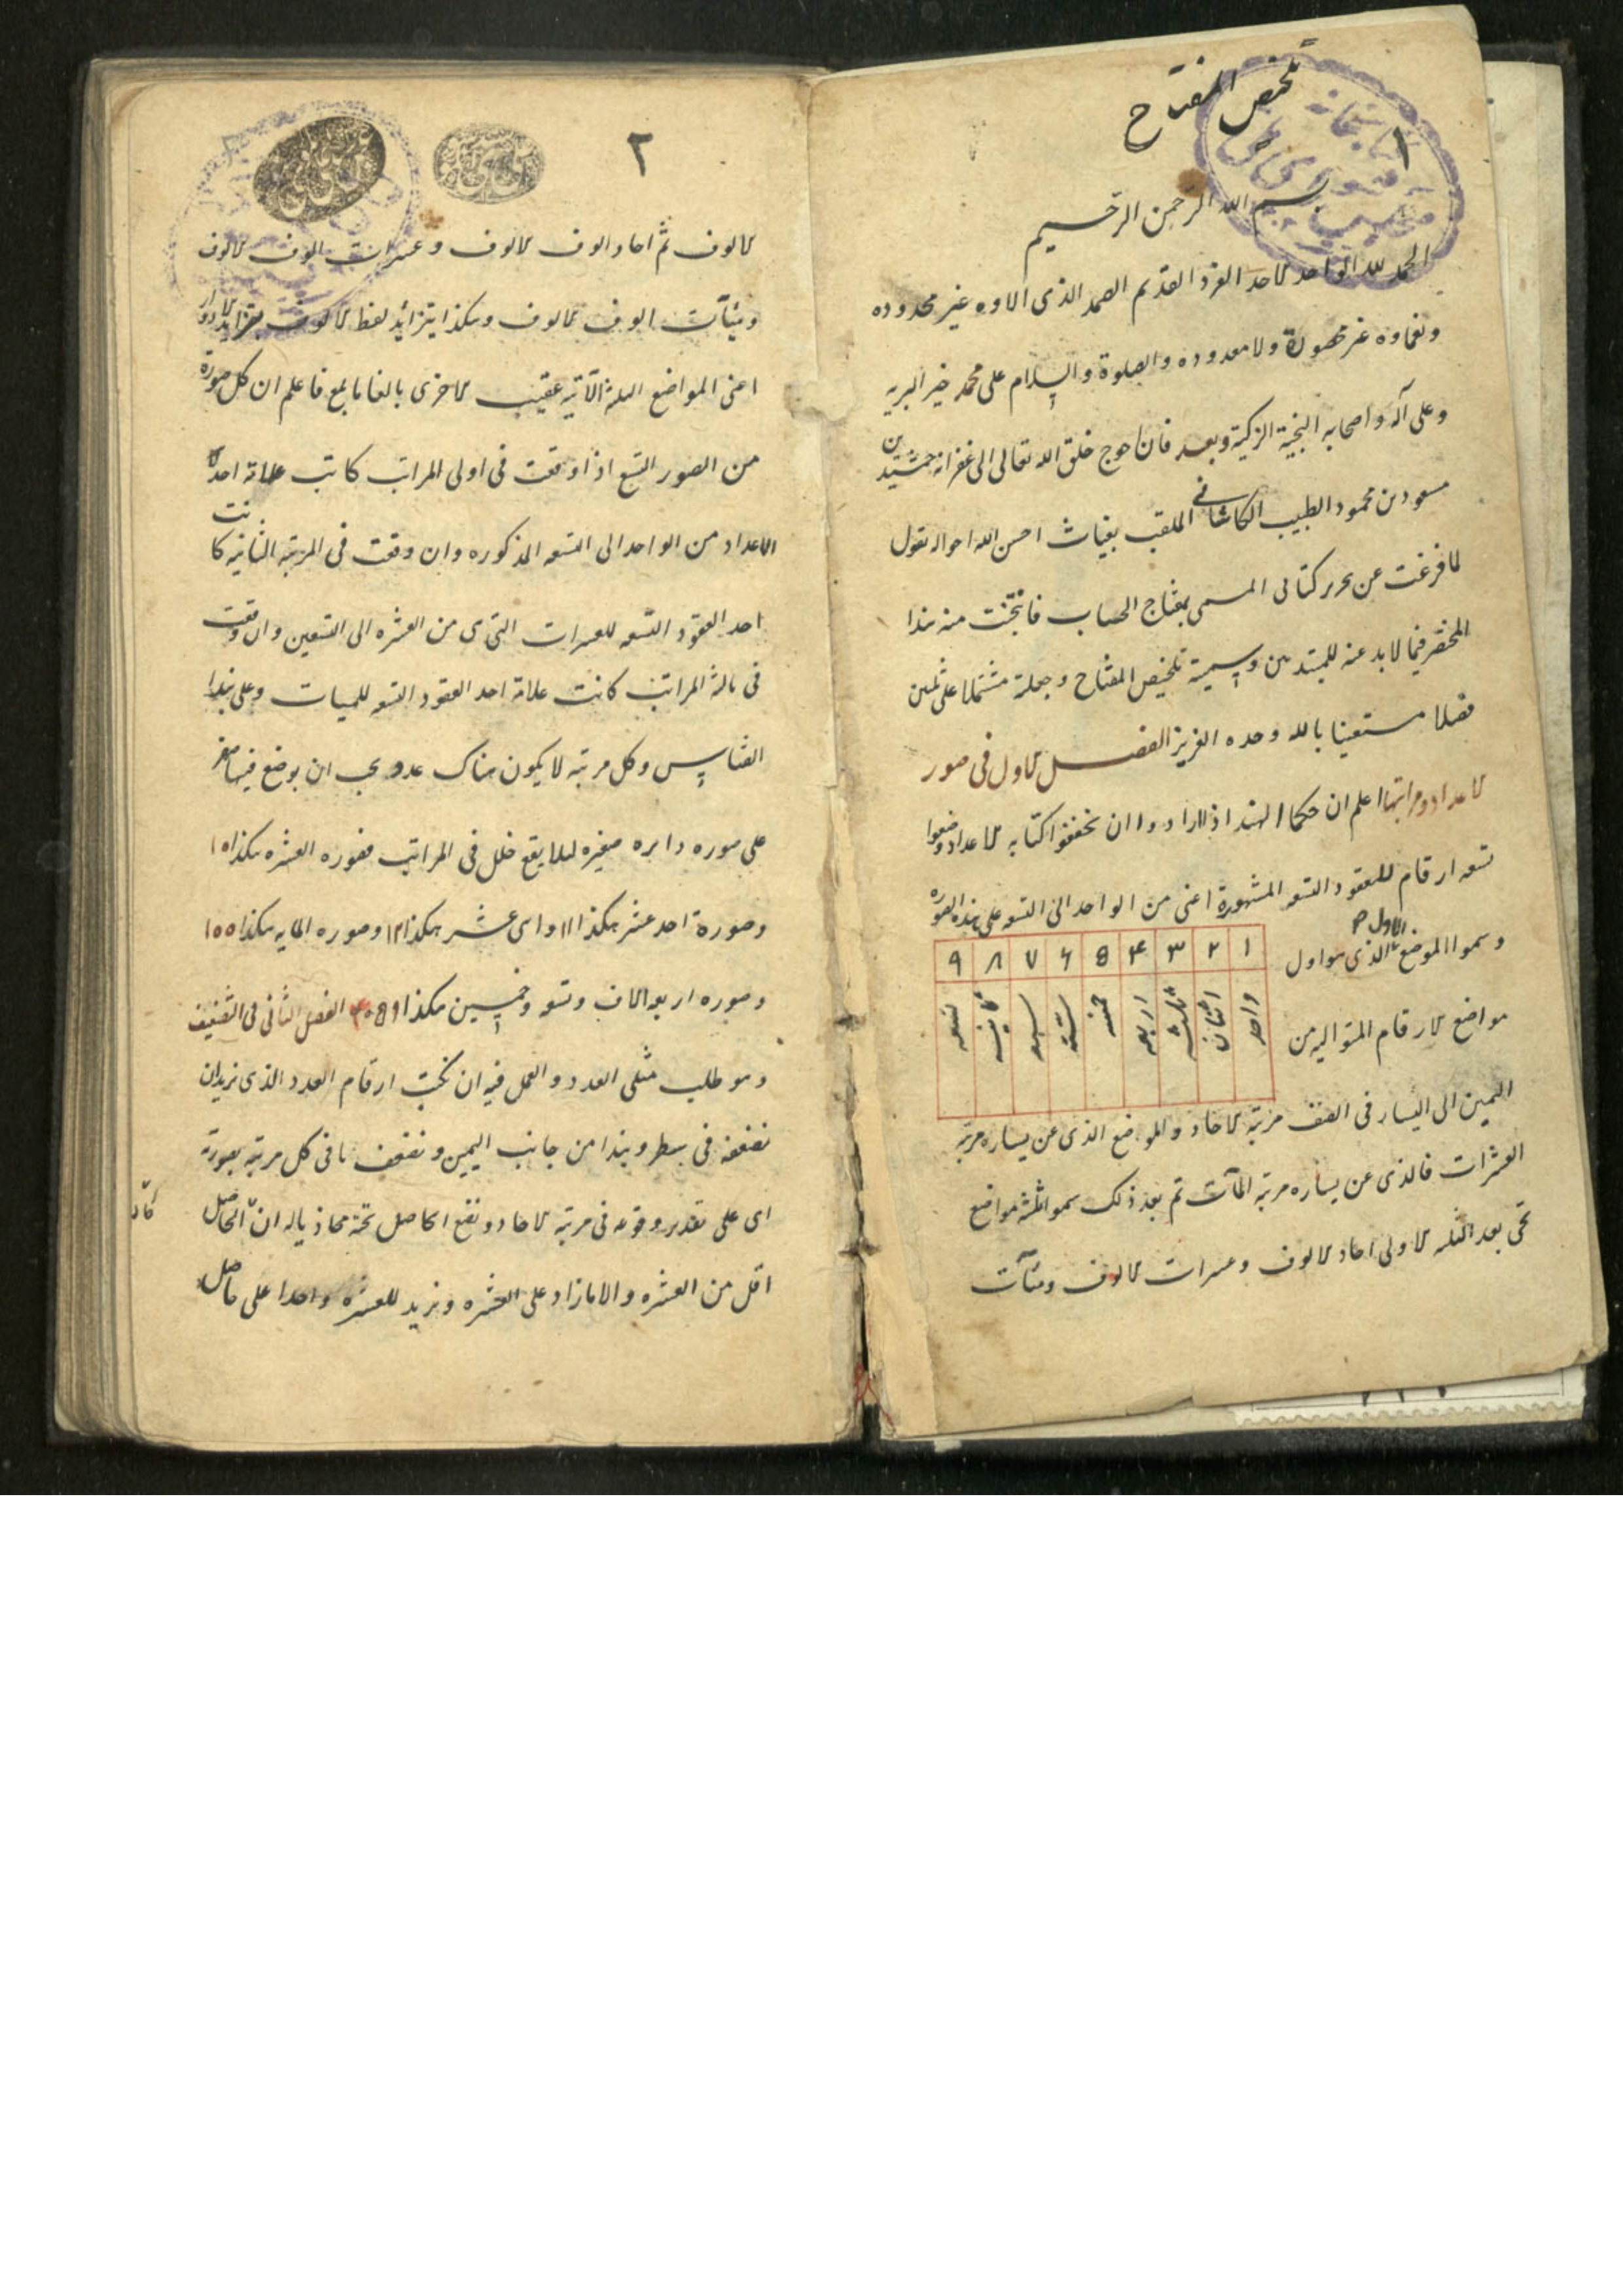 تلخيص المفتاح
١
بسم الله الرحمن الرحيم
الحمد لله الواحد الاحد الفرد القديم الصمد الذى الاوه غير محدوده
ونعماوه غير محصورة ولا معدوده والصلوة والسلام على محمد خير البريه
وعلى آله واصحابه النجبة الزكية وبعد فان احوج خلق الله تعالى الى غفرانه جمشيد بن
مسعود بن محمود الطبيب الكاشانى الملقب بغياث احسن الله احواله يقول
لما فرغت عن تحرير كتابى المسمى بمفتاح الحساب فانتخبت منه هذا
المختصر فيما لا بد عنه للمبتدئين وسميته تلخيص المفتاح وجعلته مشتملا على ثلثين
فصلا مستعينا بالله وحده العزيز الفصل الاول فى صور
الاعداد ومراتبها اعلم ان حكما الهند اذ ارادوا ان يخففوا كتابه الاعداد وضعوا
تسعه ارقام للعقود التسعه المشهورة اعنى من الواحد الى التسعه على هذه الصوره
١ ٢ ٣ ۴ 8 ۶ ٧ ٨ ٩
واحد اثنان ثلثه اربعه خمسه سته سبعه ثمانيه تسعه
وسموا الموضع الاول الذى هو اول
مواضع الارقام المتواليه من
اليمين الى اليسار فى الصف مرتبه الاحاد والموضع الذى عن يساره مرتبه
العشرات فالذى عن يساره مرتبه المآت ثم بعد ذلك سموا ثلثة مواضع
تجى بعد الثلثه الاولى احاد الالوف وعشرات الالوف ومئآت
٢
الالوف ثم احاد الوف الالوف وعشرات الوف الالوف
ومئيآت الوف الالوف وهكذا يتزايد لفظ الالوف بتزايد الادوار
اعنى المواضع الثلثه الآتيه عقيب الاخرى بالغا ما بلغ فاعلم ان كل صورة
من الصور التسع اذا وقعت فى اولى المراتب كانت علامة احد
الاعداد من الواحد الى التسعه المذكوره وان وقعت فى المرتبه الثانيه كانت
احد العقود التسعه للعشرات التى هى من العشره الى التسعين وان وقعت
فى ثالثة المراتب كانت علامة احد العقود التسعه للميات وعلى هذا
القياس وكل مرتبه لا يكون هناك عدد يجب ان يوضع فيها صفر
على صوره دايره صغيره لئلا يقع خلل فى المراتب فصوره العشره هكذا ١٥
وصورة احد عشر هكذا ١١ واثنى عشر هكذا ١٢ وصوره المايه هكذا ١٥٥
وصوره اربعه الاف وتسعه وخمسين هكذا ۴٥8٩ الفصل الثانى فى التضعيف
وهو طلب مثلى العدد والعمل فيه ان نكتب ارقام العدد الذى نريد ان
نضعفه فى سطر ونبدا من جانب اليمين ونضعف ما فى كل مرتبه بصورته
اى على تقدير وقوعه فى مرتبه الاحاد ونضع الحاصل تحته محاذيا له ان كان الحاصل
اقل من العشره والا ما زاد على العشره ونزيد للعشره واحدا على حاصل